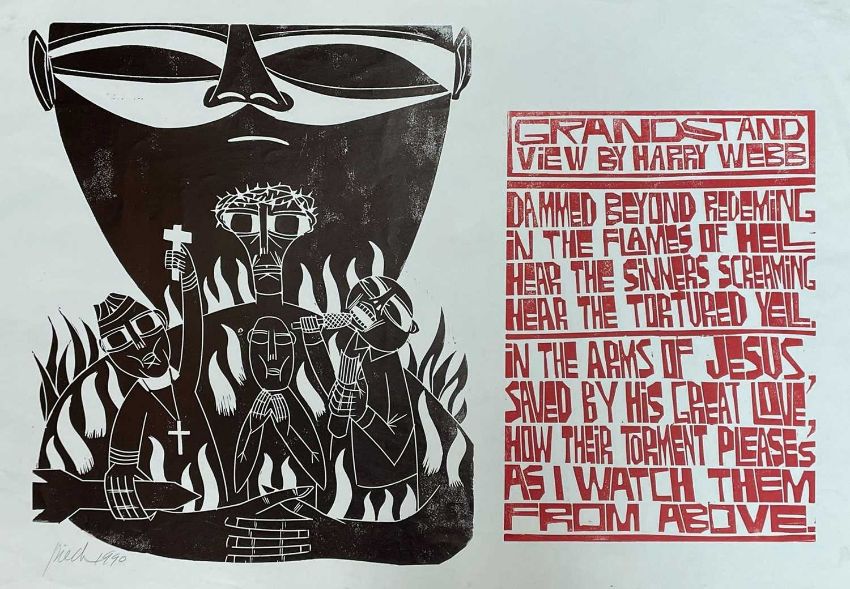 GRANDSTAND
VIEW BY HARRY WEBB
DAMMED BEYOND REDEMING
IN THE FLAMES OF HELL
HEAR THE SINNERS SCREAMING
HEAR THE TORTURED YELL.
IN THE ARMS OF JESUS,
SAVED BY HIS GREAT LOVE,
HOW THEIR TORMENT PLEASES
AS I WATCH THEM
FROM ABOVE.
Piech 1990